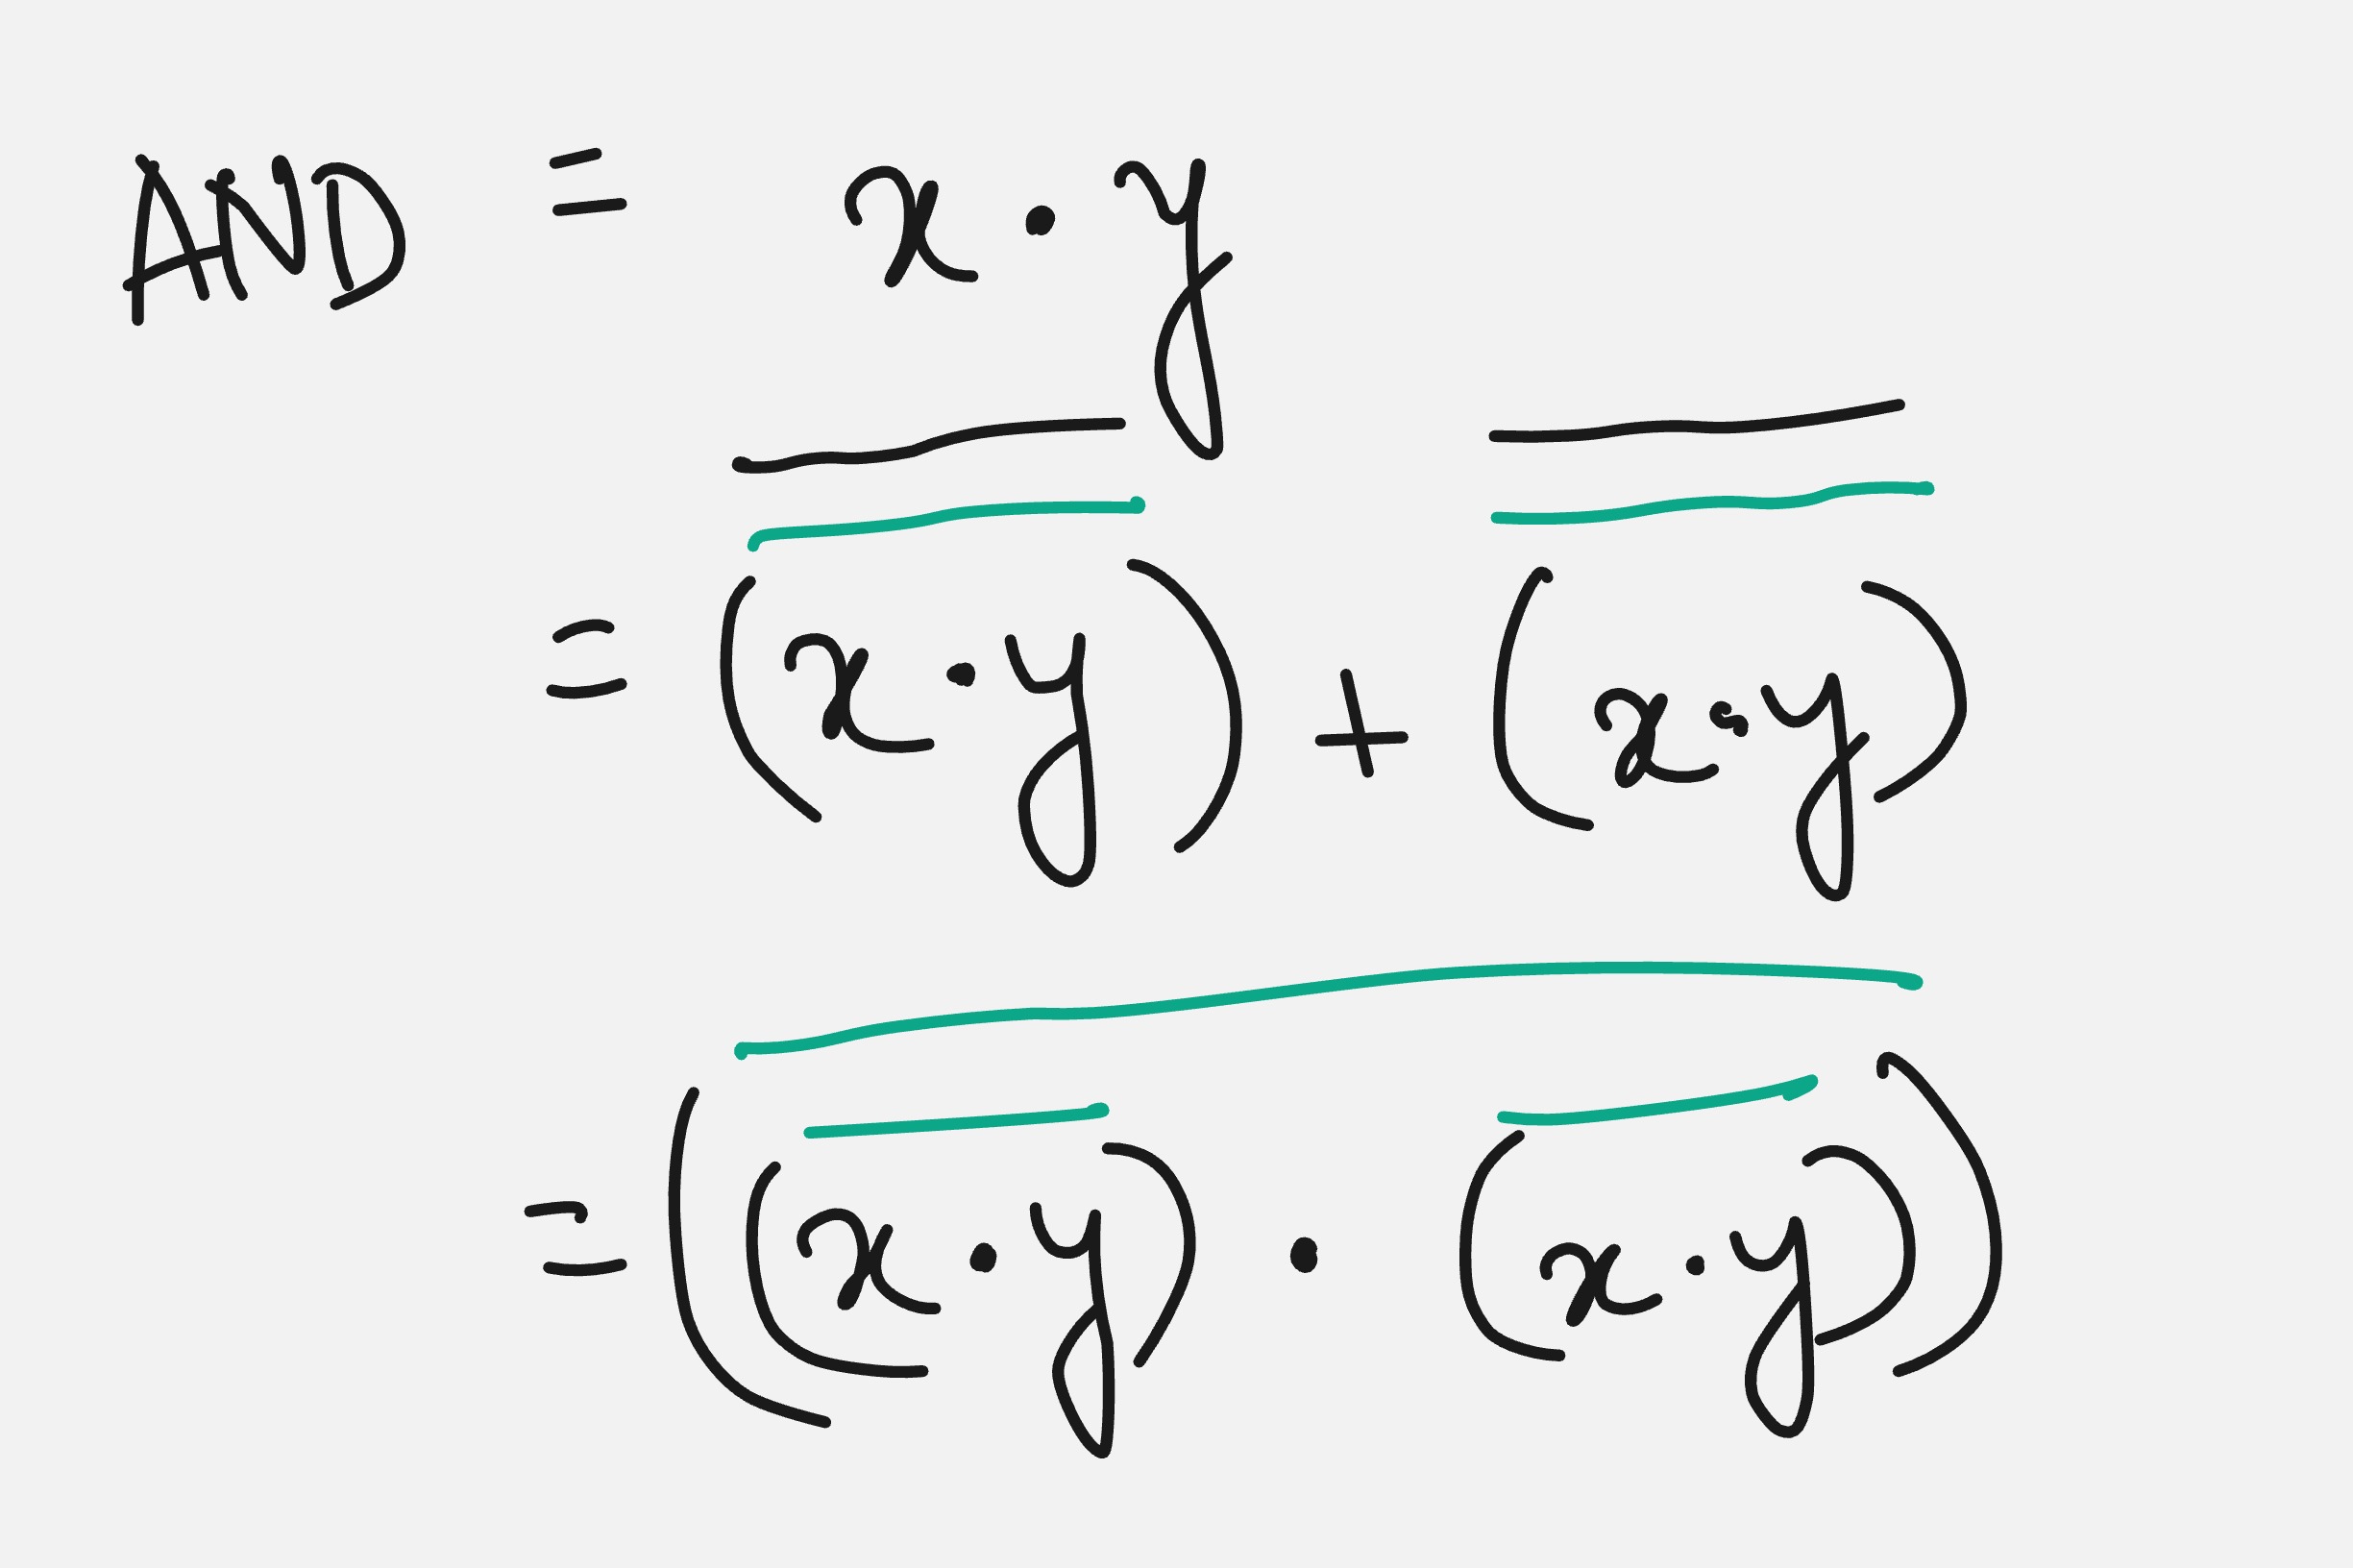 AND = x · y
= \overline{\overline{(x · y)}} + \overline{\overline{(x · y)}}
= \overline{(\overline{(x · y)} · \overline{(x · y)})}